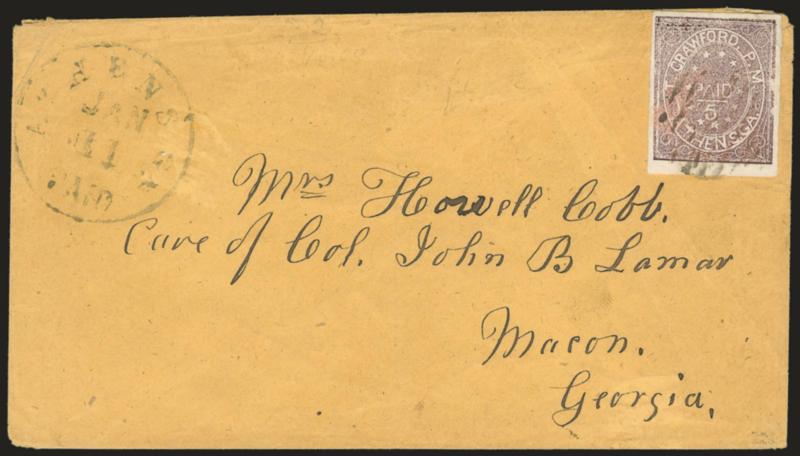 ATHENS
JAN
11
GEO
T. CRAWFORD. P.M.
PAID
5
ATHENS.GA.
Mrs Howell Cobb.
Care of Col. John B Lamar
Macon.
Georgia,